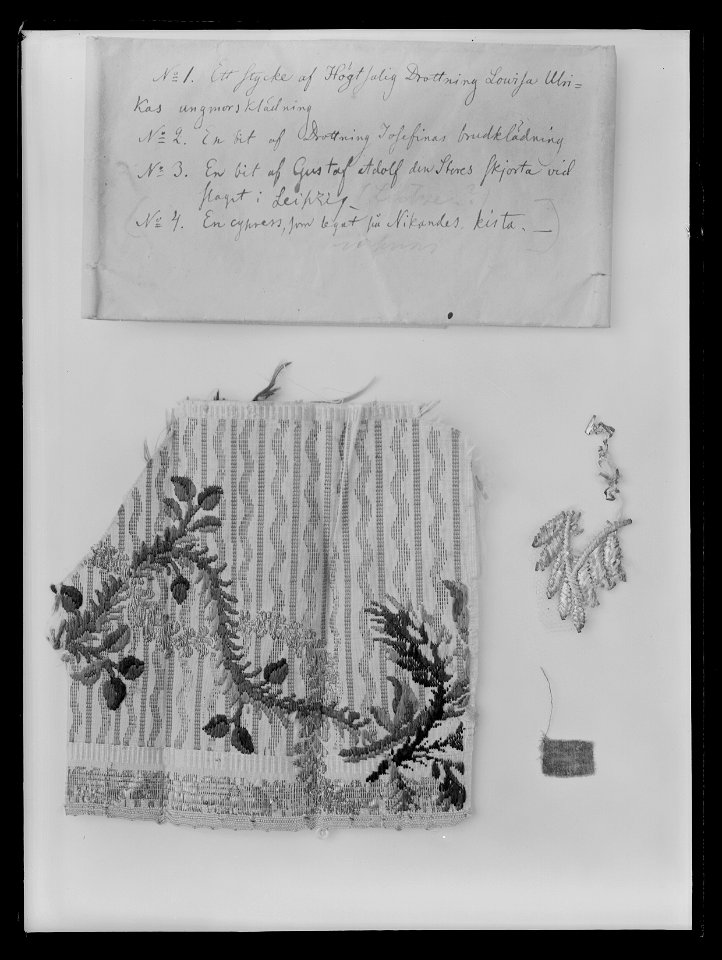 No 1. Ett stycke af Högtsalig Drottning Lovisa Ulri=
kas ungmorsklädning
No 2. En bit af Drottning Josefinas brudklädning
No 3. En bit af Gustaf Adolf den Stores skjorta vid
slaget i Leipzig
No 4. En cypress, som legat på Nikandes kista.